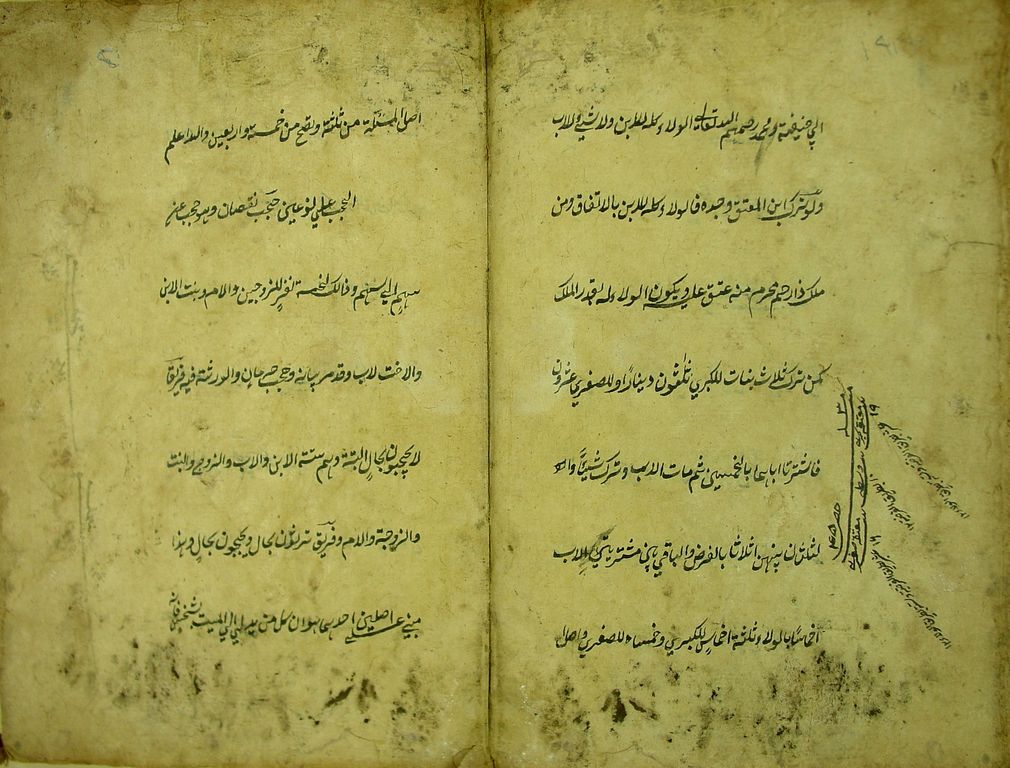 ابي حنيفة ومحمد رحمهم الله تعالى الولاء كله للابن ولا شيء للاب
ولو ترك ابن المعتق وجده فالولاء كله للابن بالاتفاق ومن
ملك ذا رحم محرم منه عتق عليه ويكون الولاء له بقدر الملك
كمن ترك ثلاث بنات للكبرى ثلثون دينارا وللصغرى عشرون
فاشترتا اباهما بالخمسين ثم مات الاب وترك شيئا
لثلثان بينهن اثلاثا بالفرض والباقي بين مشتريتي الاب
اخماسا بالولاء ثلثة اخماس للكبرى وخمساه للصغرى واصل
اصل المسئلة من ثلثة وتصح من خمسة واربعين والله اعلم
الحجب على نوعين حجب نقصان وهو حجب عن
سهم الى سهم وذالك لخمسة نفر للزوجين والام وبنت الابن
والاخت لاب وقد مر بيانه وحجب حرمان والورثة فيه فريقان
لا يحجبون بحال البتة وهم ستة الابن والاب والزوج والبنت
والزوجة والام وفريق يرثون بحال ويحجبون بحال وهذا
مبني على اصلين احدهما هو ان كل من يدلي الى الميت بشخص